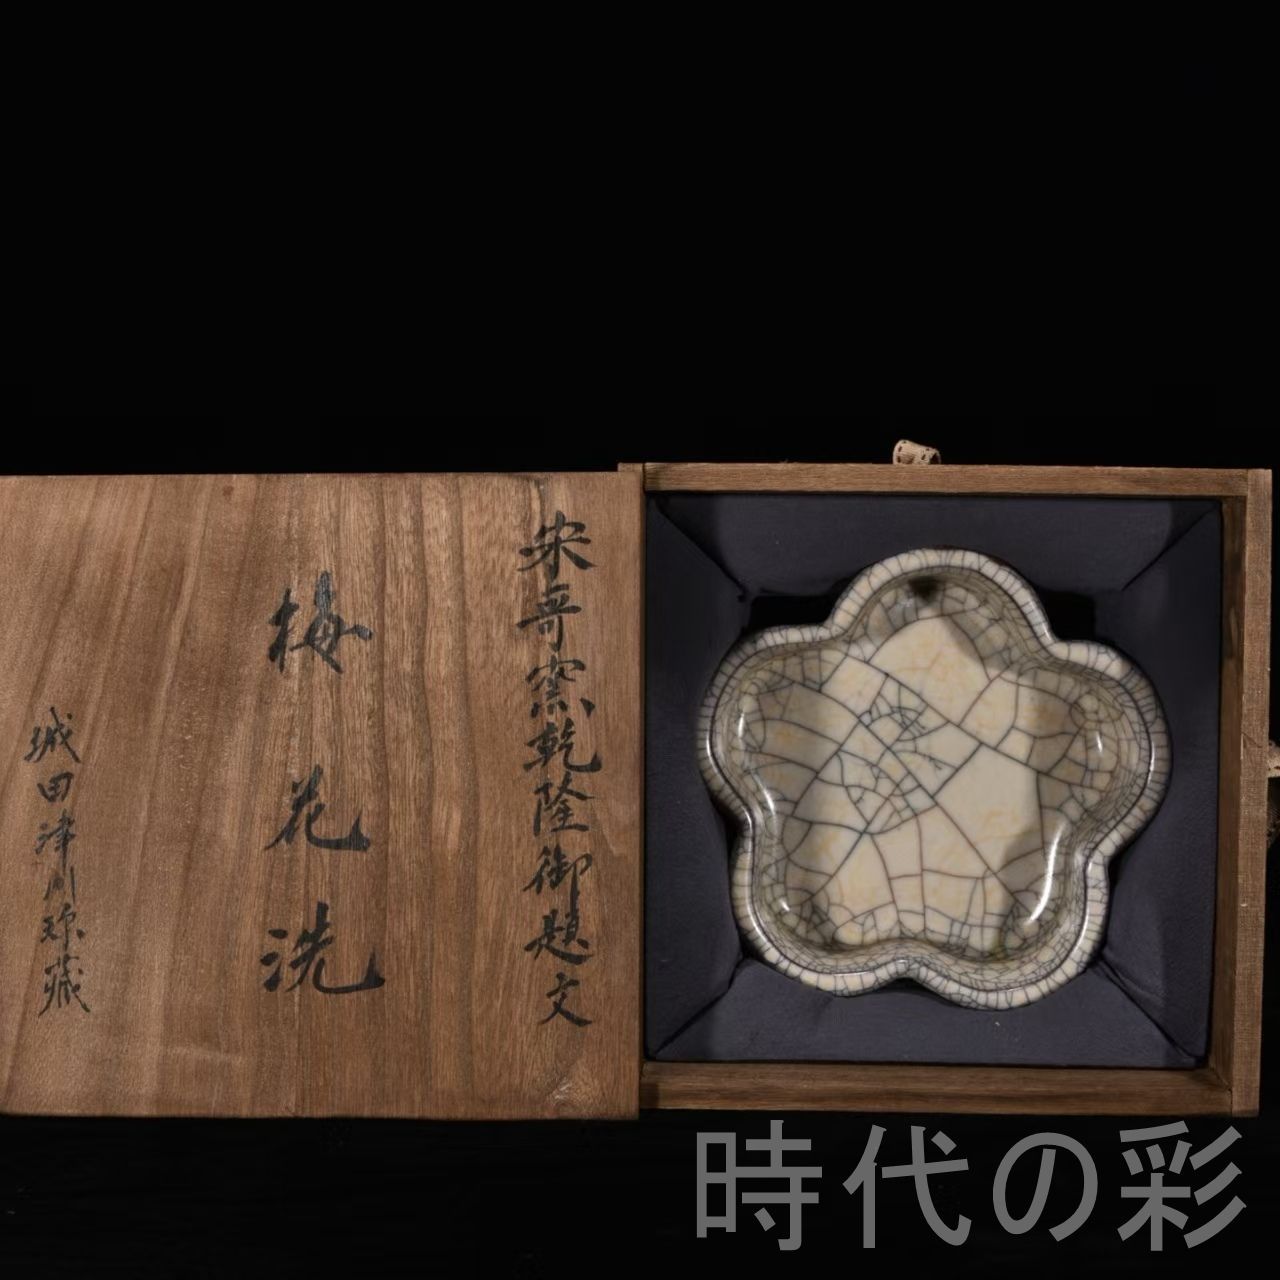 宋哥窯乾隆御題文
梅花洗
城田津川珎藏
時代の彩